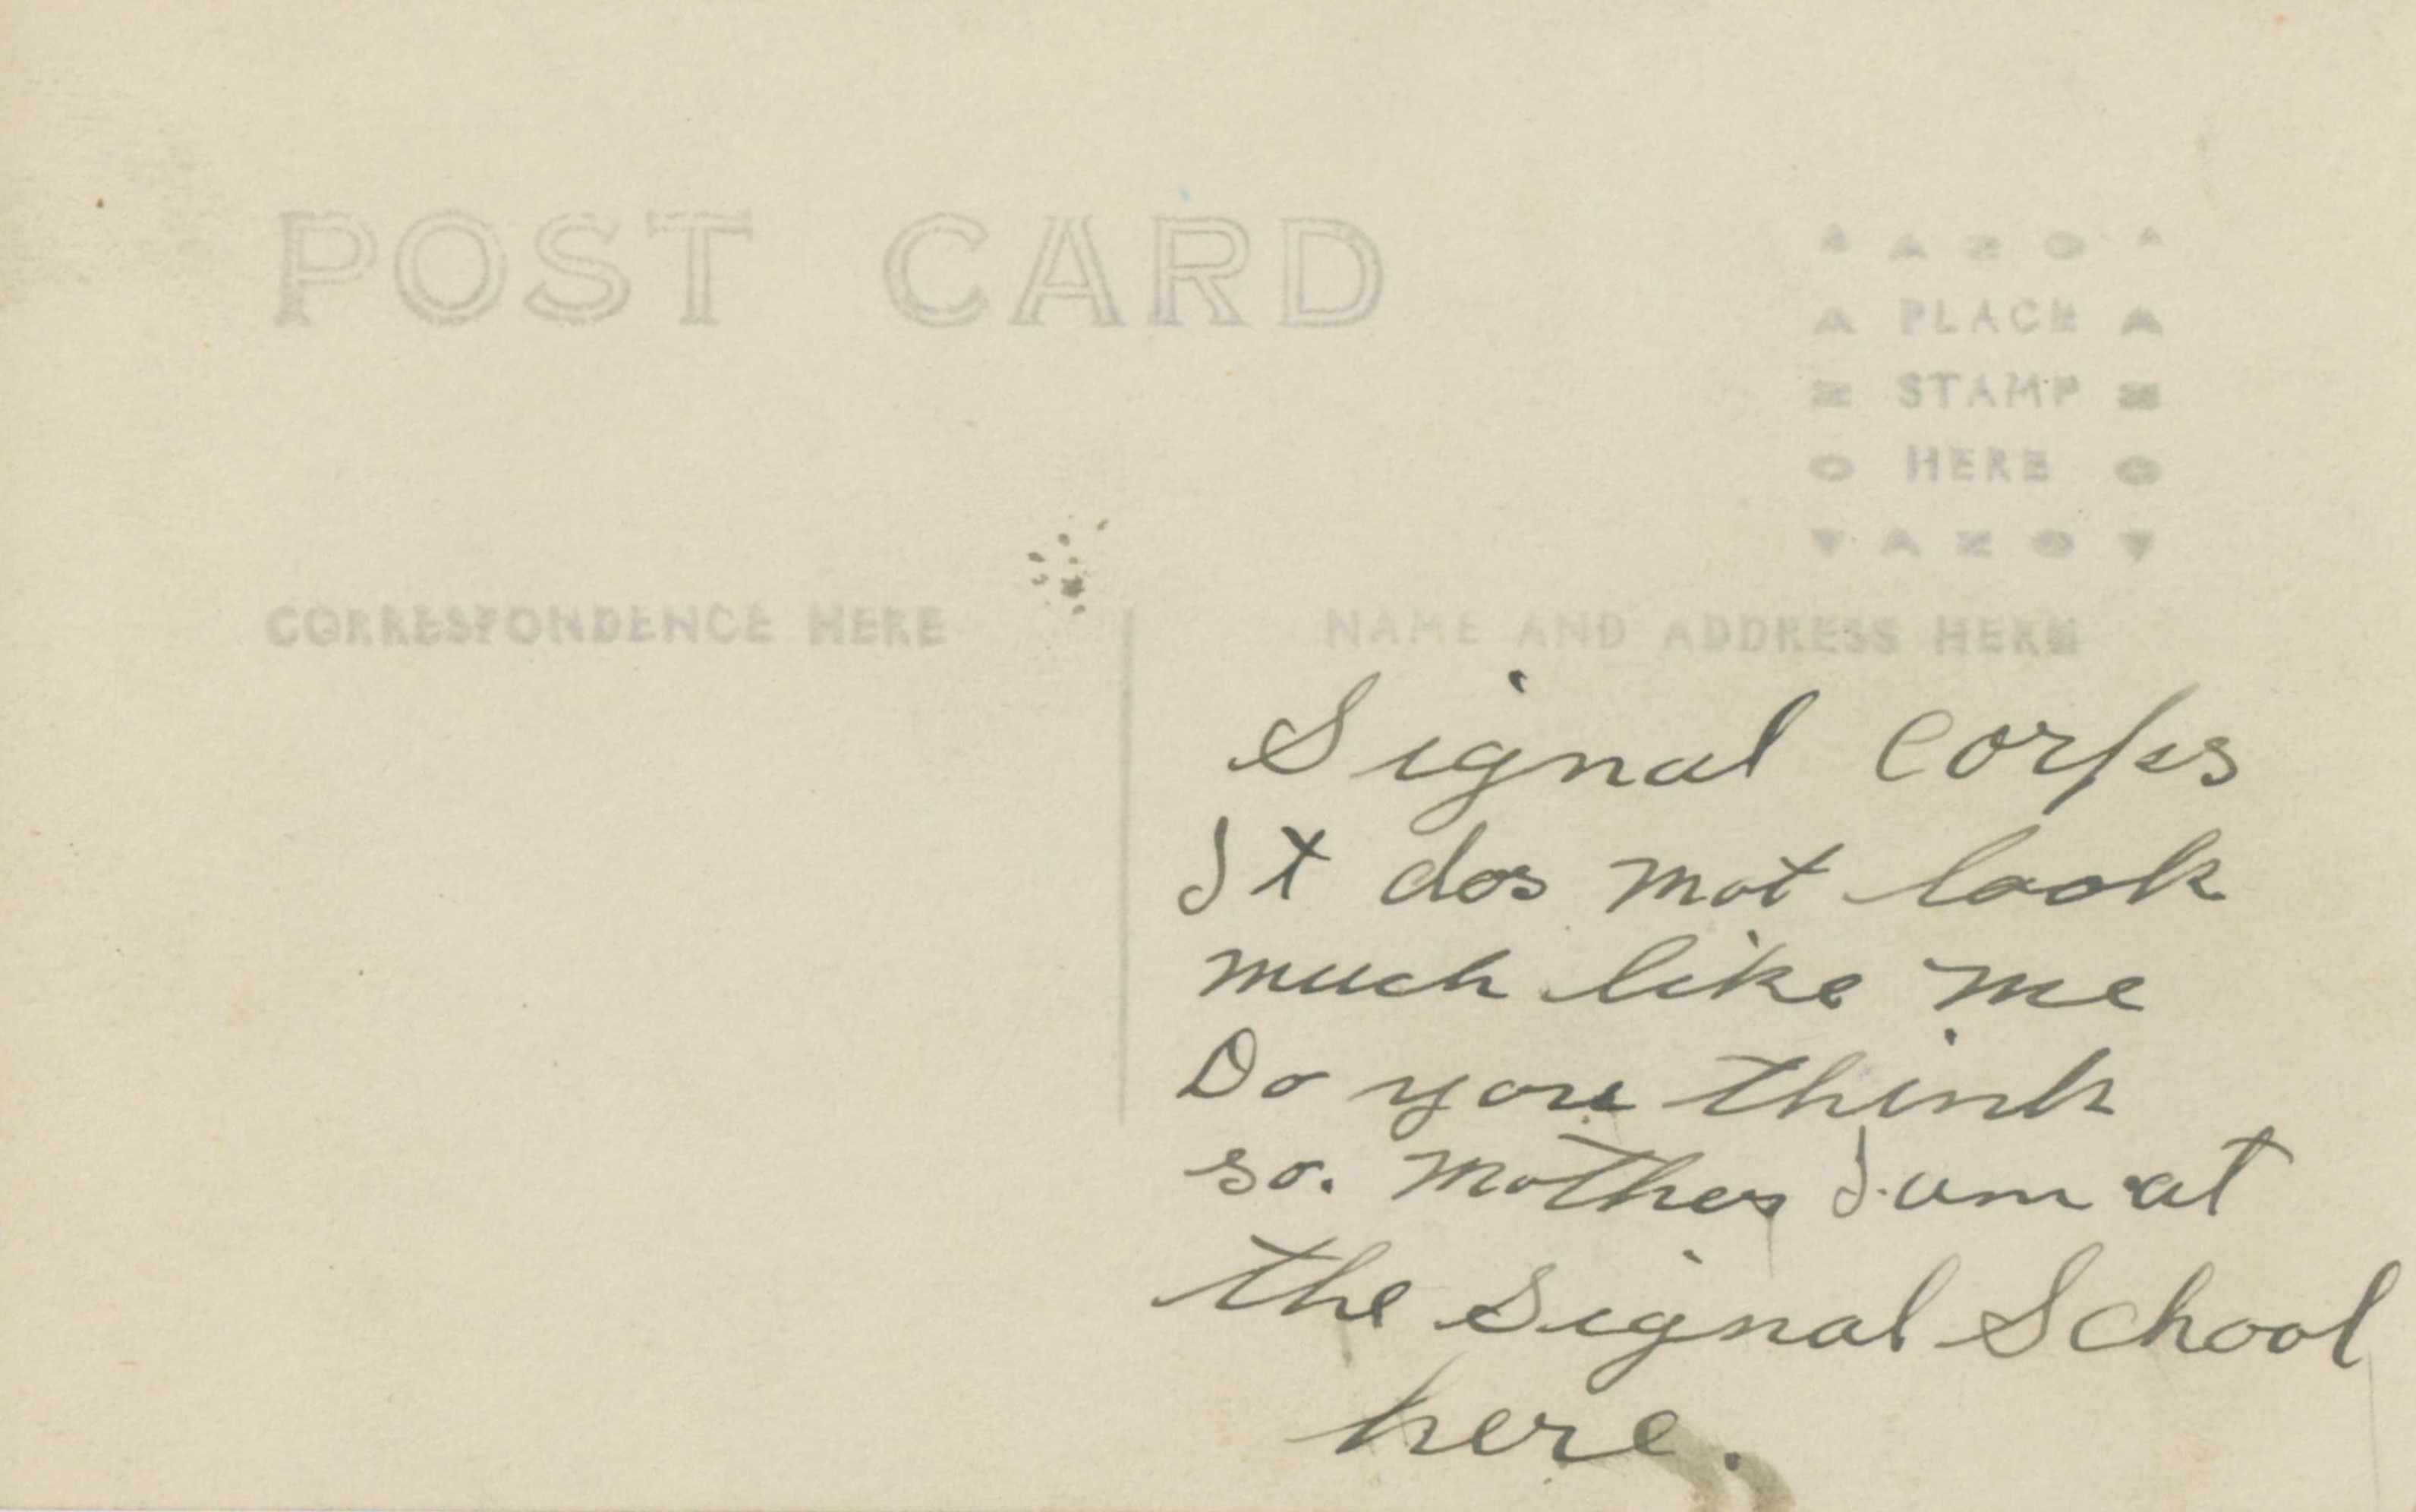 POST CARD
AZO
PLACE
STAMP
HERE
AZO
CORRESPONDENCE HERE
NAME AND ADDRESS HERE
Signal corps
It dos not look
much like me
Do you think
so. Mother I am at
the Signal School
here.